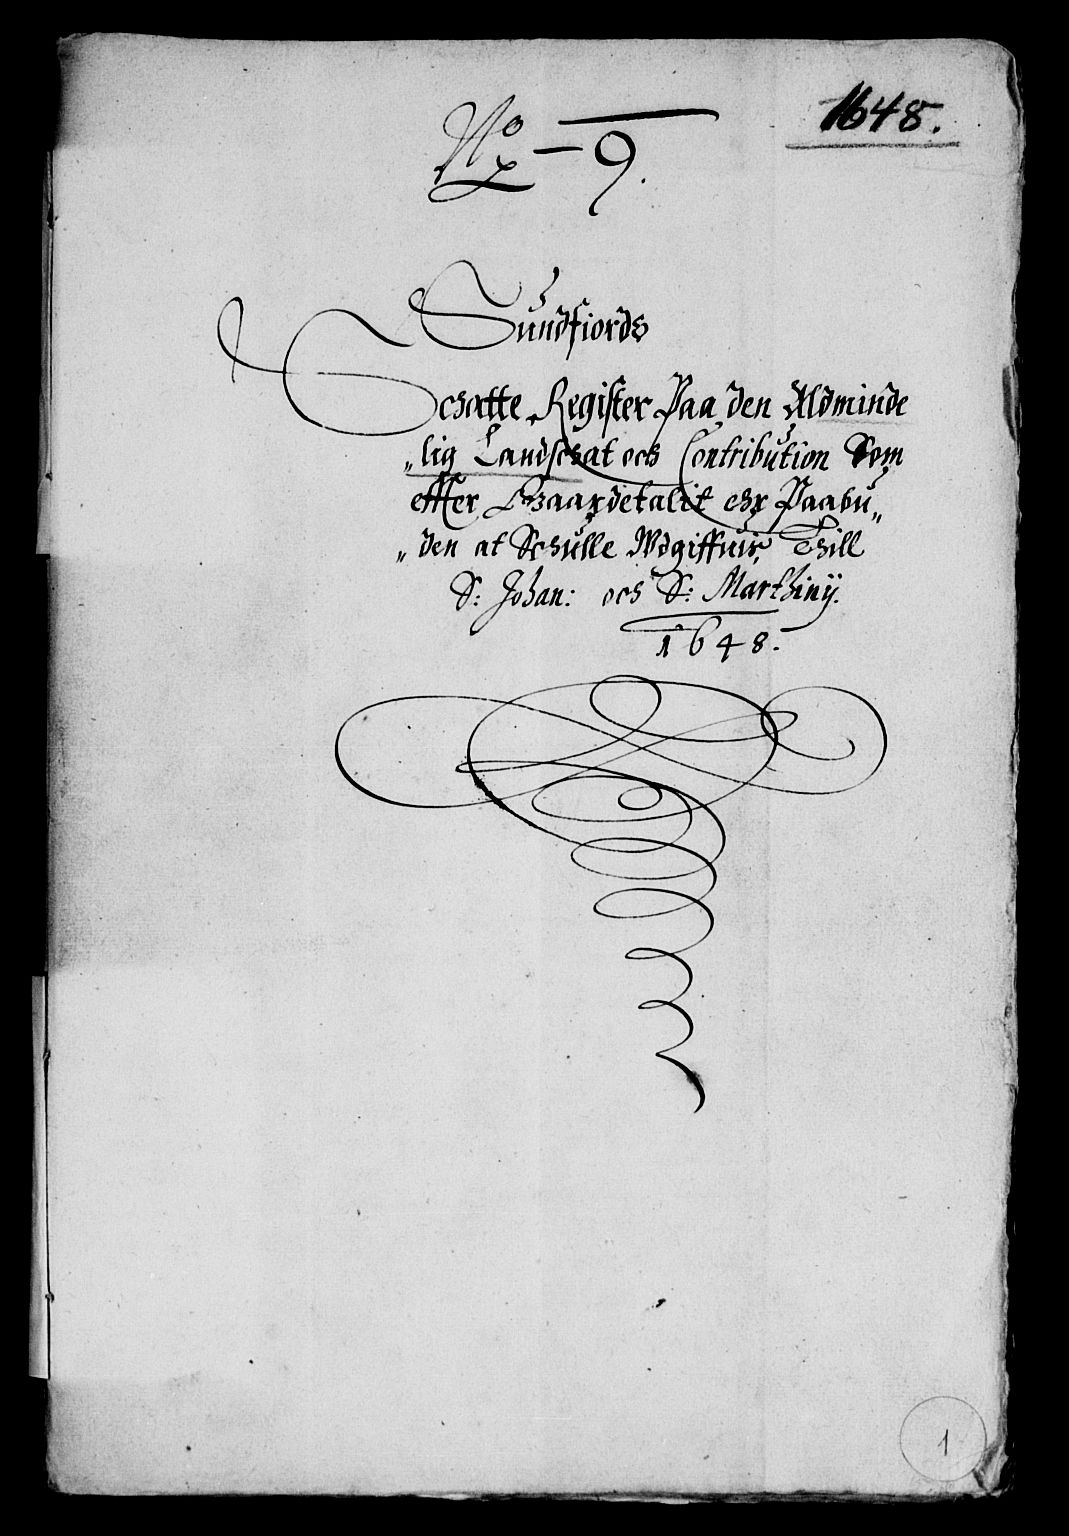 1648.
No – 9.
Sundfiords
Schatte Register Paa den Aldminde
„lig Landschat och Contribution Som
effter Gaardetalit ehr Paabu„
„den at Schulle Wdgiffuis Thill
S: Johan: och S: Marthinij.
1648.
1